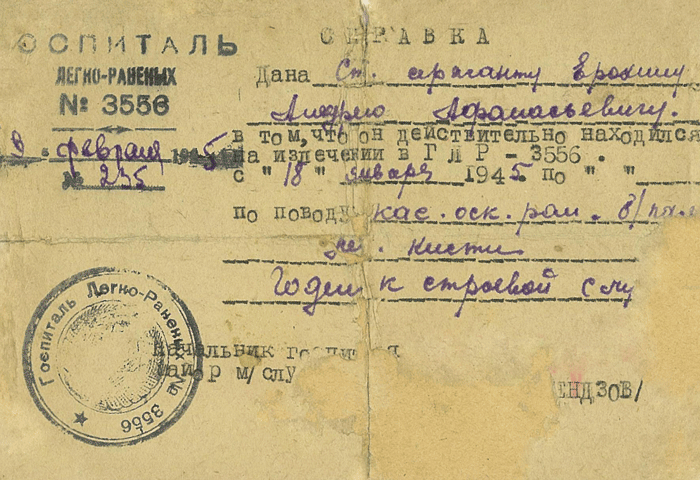 ОСПИТАЛЬ
ЛЕГКО-РАНЕНЫХ
№ 3556
9 февраля 1945
№ 235
СПРАВКА
Дана Ст. сержанту Ерохину
Андрею Афанасьевичу.
в том, что он действительно находился
на излечении в ГЛР - 3556.
с " 18 " января 1945. по " "
по поводу кас. оск. ран. б/пал
кисти
Годен к строевой слу
Начальник госпиталя
майор м/слу
ЕНДЗОВ/
Госпиталь Легко-Раненых № 3556